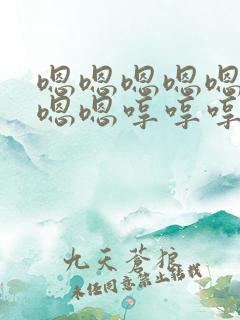 嗯嗯嗯嗯嗯
嗯嗯哼哼哼
九天蒼狼
未经同意禁止转载